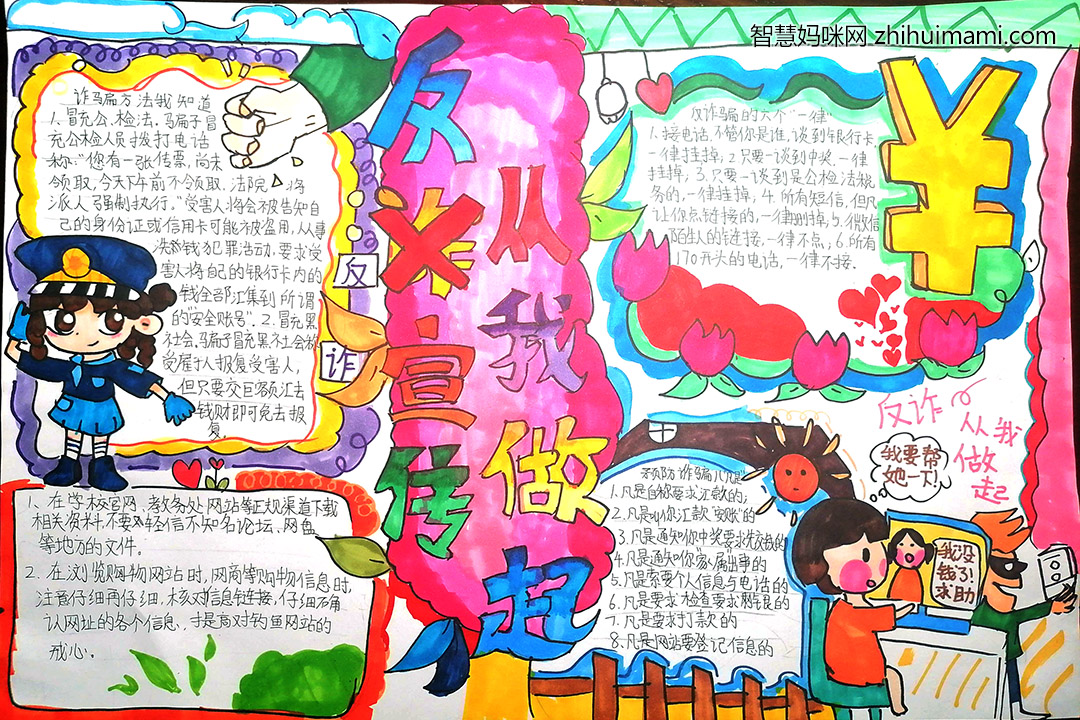 智慧妈咪网 zhihuimami.com
反诈宣传
从我做起
诈骗方法我知道
1、冒充公、检法，骗子冒
充公检人员拨打电话
称:"您有一张传票，尚未
领取，今天下午前不领取，法院将
派人强制执行。"受害人将会被告知自
己的身份证或信用卡可能被盗用，从事
洗钱犯罪活动，要求受
害人将自己的银行卡内的
钱全部汇集到所谓
的"安全账号"。2.冒充黑
社会，骗子冒充黑社会称
受雇于人报复受害人，
但只要交巨额汇去
钱财即可免去报
复。
反
诈
1、在学校官网、教务处网站等正规渠道下载
相关资料，不要轻信不知名论坛、网盘
等地方的文件。
2、在浏览购物网站时，网商等购物信息时，
注意仔细再仔细，核对信息链接，仔细确
认网址的各个信息，于是面对钓鱼网站的
戒心。
反诈骗的六个"一律"
1、接电话，不管你是谁，谈到银行卡
一律挂掉；2.只要一谈到中奖，一律
挂掉；3.只要一谈到是公检法税
务的，一律挂掉；4.所有短信，但凡
让你点链接的，一律删掉；5.微信
陌生人的链接，一律不点；6.所有
170开头的电话，一律不接.
¥
反诈
从我
做
起
我要帮
她一下!
我没
钱了!
求助
预防诈骗八凡是
1.凡是自称要求汇款的；
2.凡是叫你汇款"安账"的
3.凡是通知你中奖要求先交钱的
4.凡是通知你家属出事的
5.凡是索要个人信息与电话的
6.凡是要求检查要求网银的
7.凡是要求打款的
8.凡是网站要登记信息的